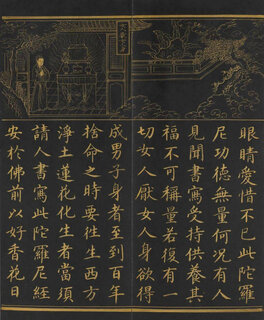 眼睛愛惜不已此陀羅
尼功德無量何況有人
見聞書寫受持供養其
福不可稱量若復有一
切女人厭女人身欲得
成男子身者至到百年
捨命之時要往生西方
淨土蓮花化生者當須
請人書寫此陀羅尼經
安於佛前以好香花日